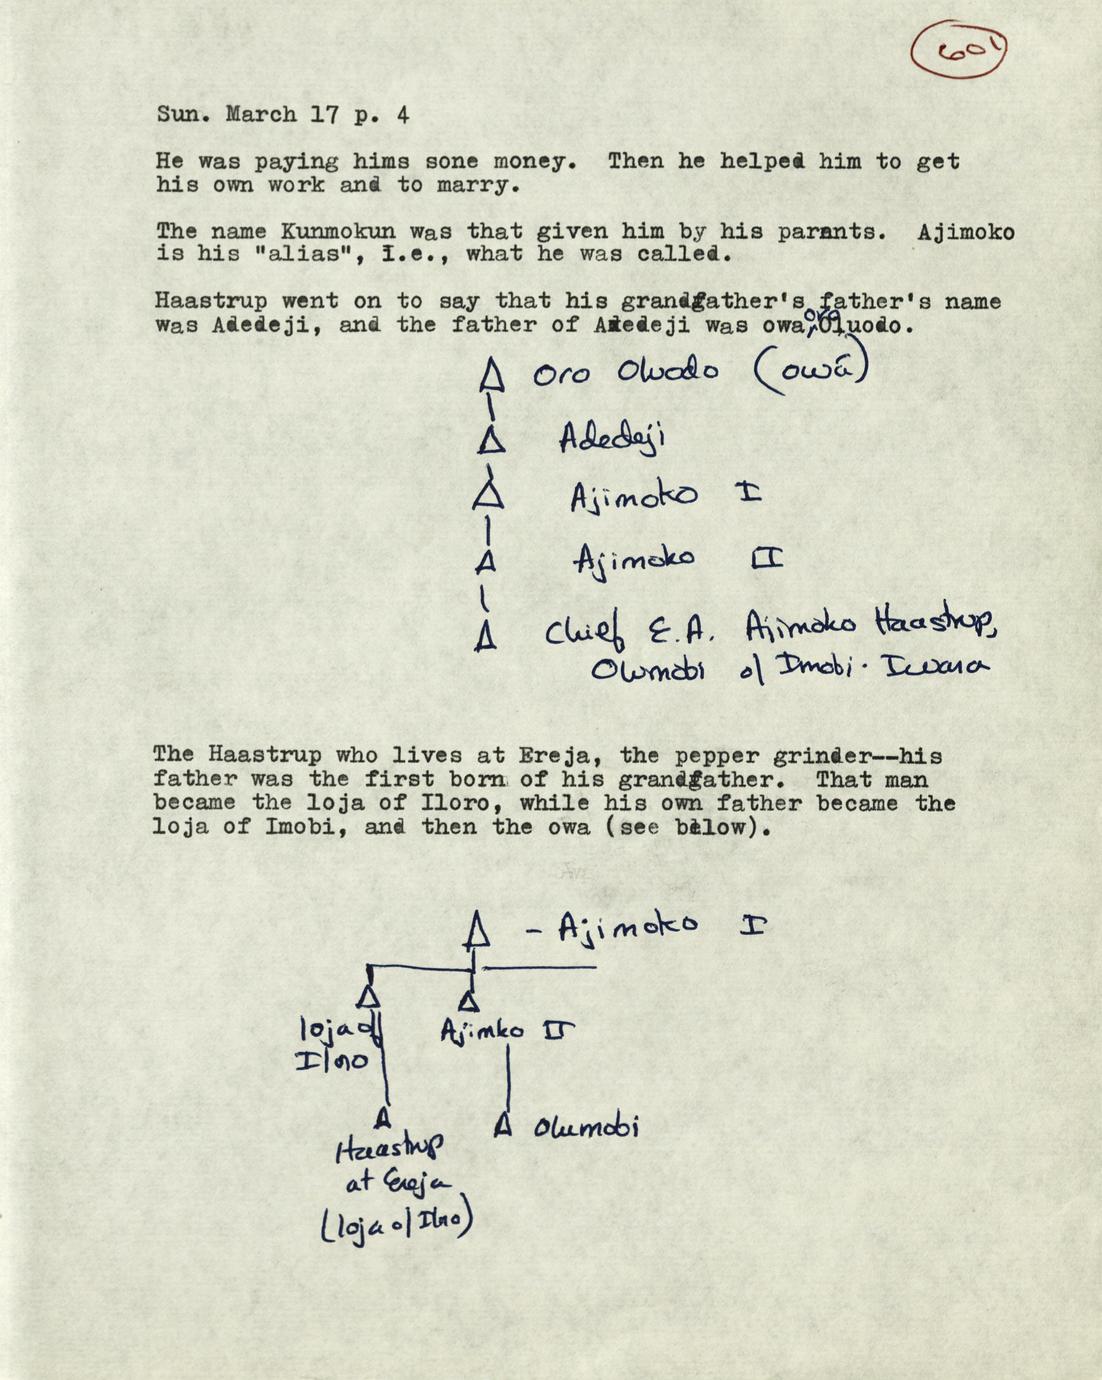 601
Sun. March 17 p. 4
He was paying hims sone money. Then he helped him to get
his own work and to marry.
The name Kunmokun was that given him by his parents. Ajimoko
is his "alias", I.e., what he was called.
Haastrup went on to say that his grandfather's father's name
was Adedeji, and the father of Adedeji was owa, oro Oluodo.
Oro Oluodo (owá)
Adedeji
Ajimoko I
Ajimoko II
Chief E.A. Ajimoko Haastrup,
Olumobi of Imobi. Iwara
The Haastrup who lives at Ereja, the pepper grinder--his
father was the first born of his grandfather. That man
became the loja of Iloro, while his own father became the
loja of Imobi, and then the owa (see below).
- Ajimoko I
loja of
Iloro
Ajimko II
Haastrup
at Ereja
(loja of Iloro)
Olumobi